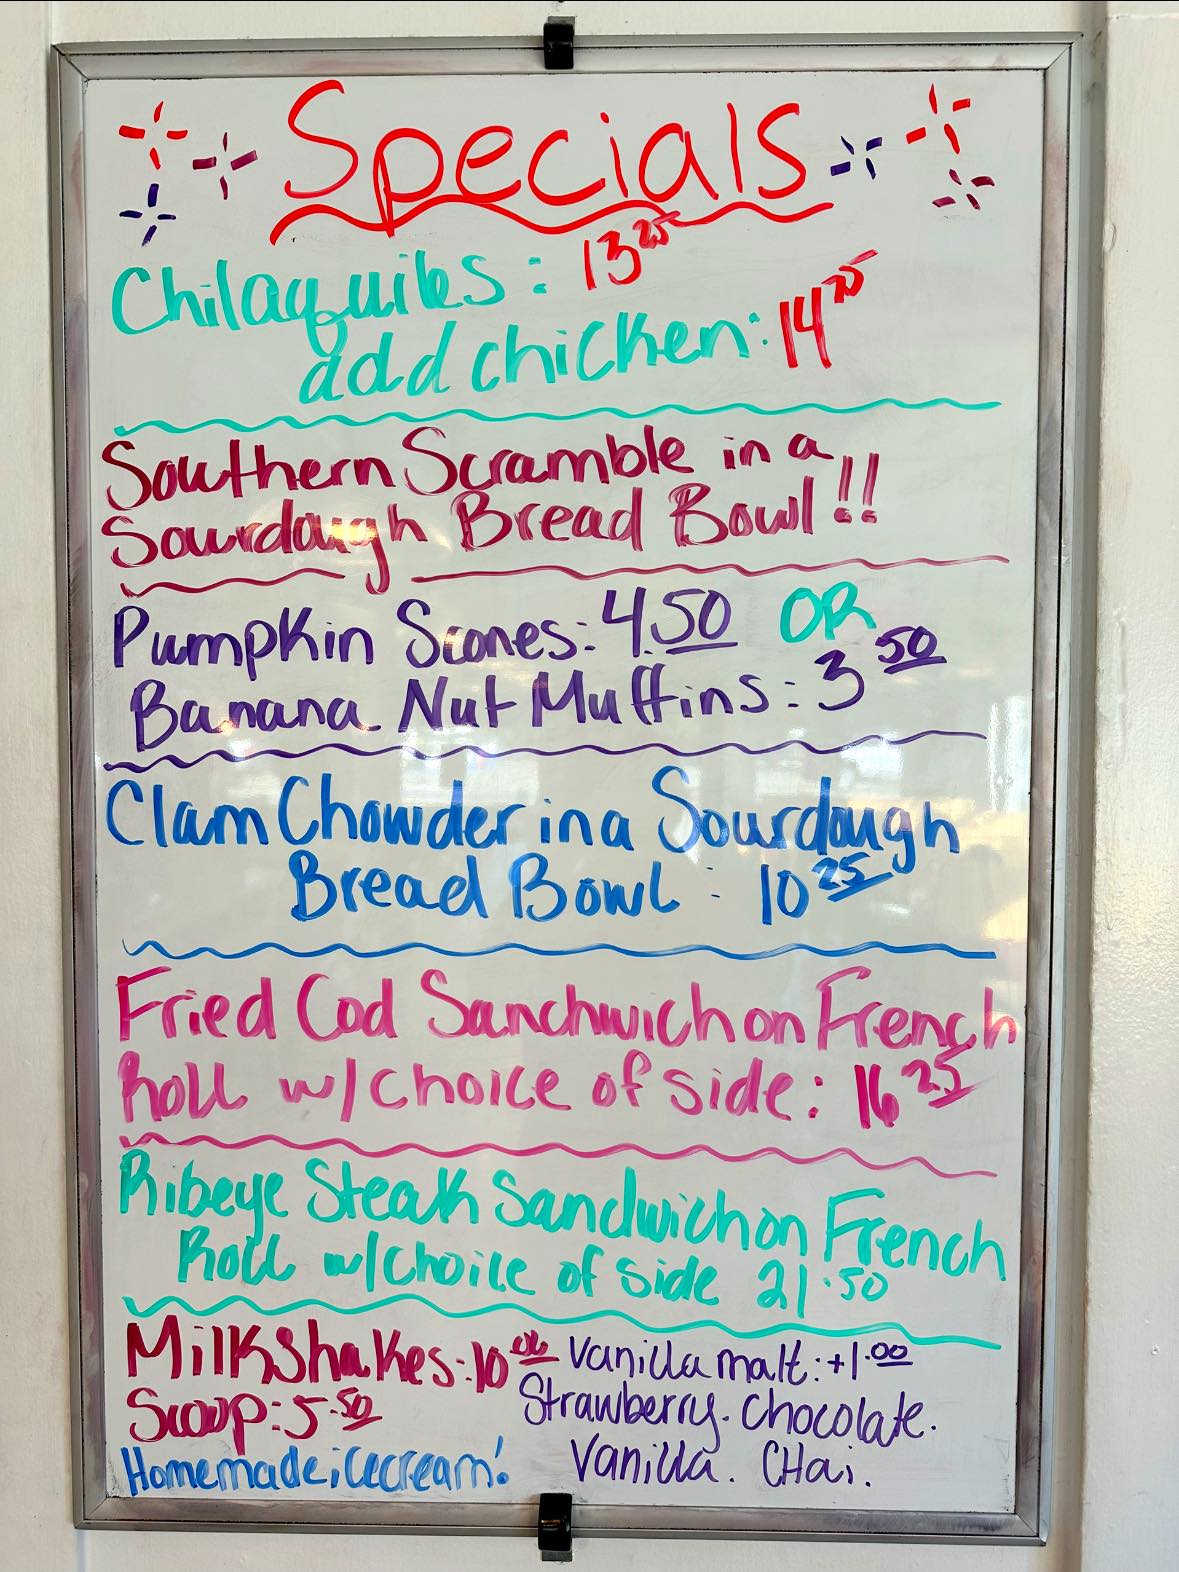 Specials
Chilaquiles: 13.25
add chicken: 14.75
Southern Scramble in a
Sourdough Bread Bowl!!
Pumpkin Scones: 4.50 OR
Banana Nut Muffins: 3.50
Clam Chowder in a Sourdough
Bread Bowl: 10.25
Fried Cod Sanchwich on French
Roll w/choice of side: 16.25
Ribeye Steak Sandwich on French
Roll w/choice of side 21.50
MilkShakes: 10.00
Scoop: 5.50
Homemade icecream!
Vanilla malt: +1.00
Strawberry. Chocolate.
Vanilla. CHai.